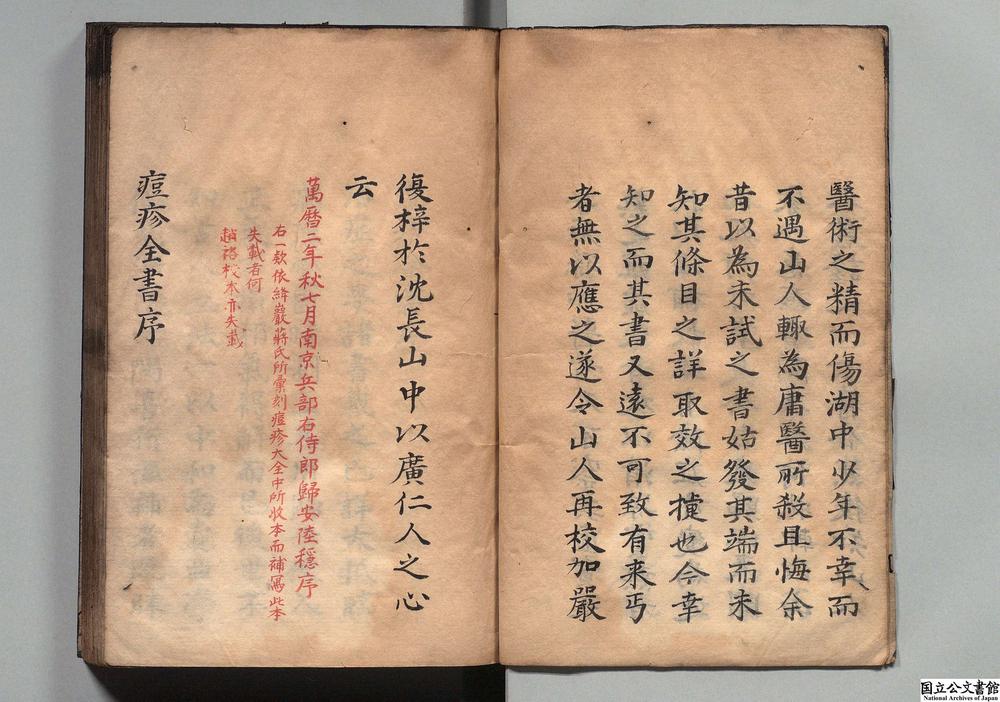 醫術之精而傷湖中少年不幸而
不遇山人輙為庸醫所殺且悔余
昔以為未試之書姑發其端而未
知其條目之詳取效之捷也今幸
知之而其書又遠不可致有来丐
者無以應之遂令山人再校加嚴
復梓於沈長山中以廣仁人之心
云
萬曆二年秋七月南京兵部右侍郎歸安陸穩序
右一欵依絳巖蔣氏所彙刻痘疹大全中所收本而補寫此本
失載者何
越裕校本亦失載
痘疹全書序
国立公文書館
National Archives of Japan